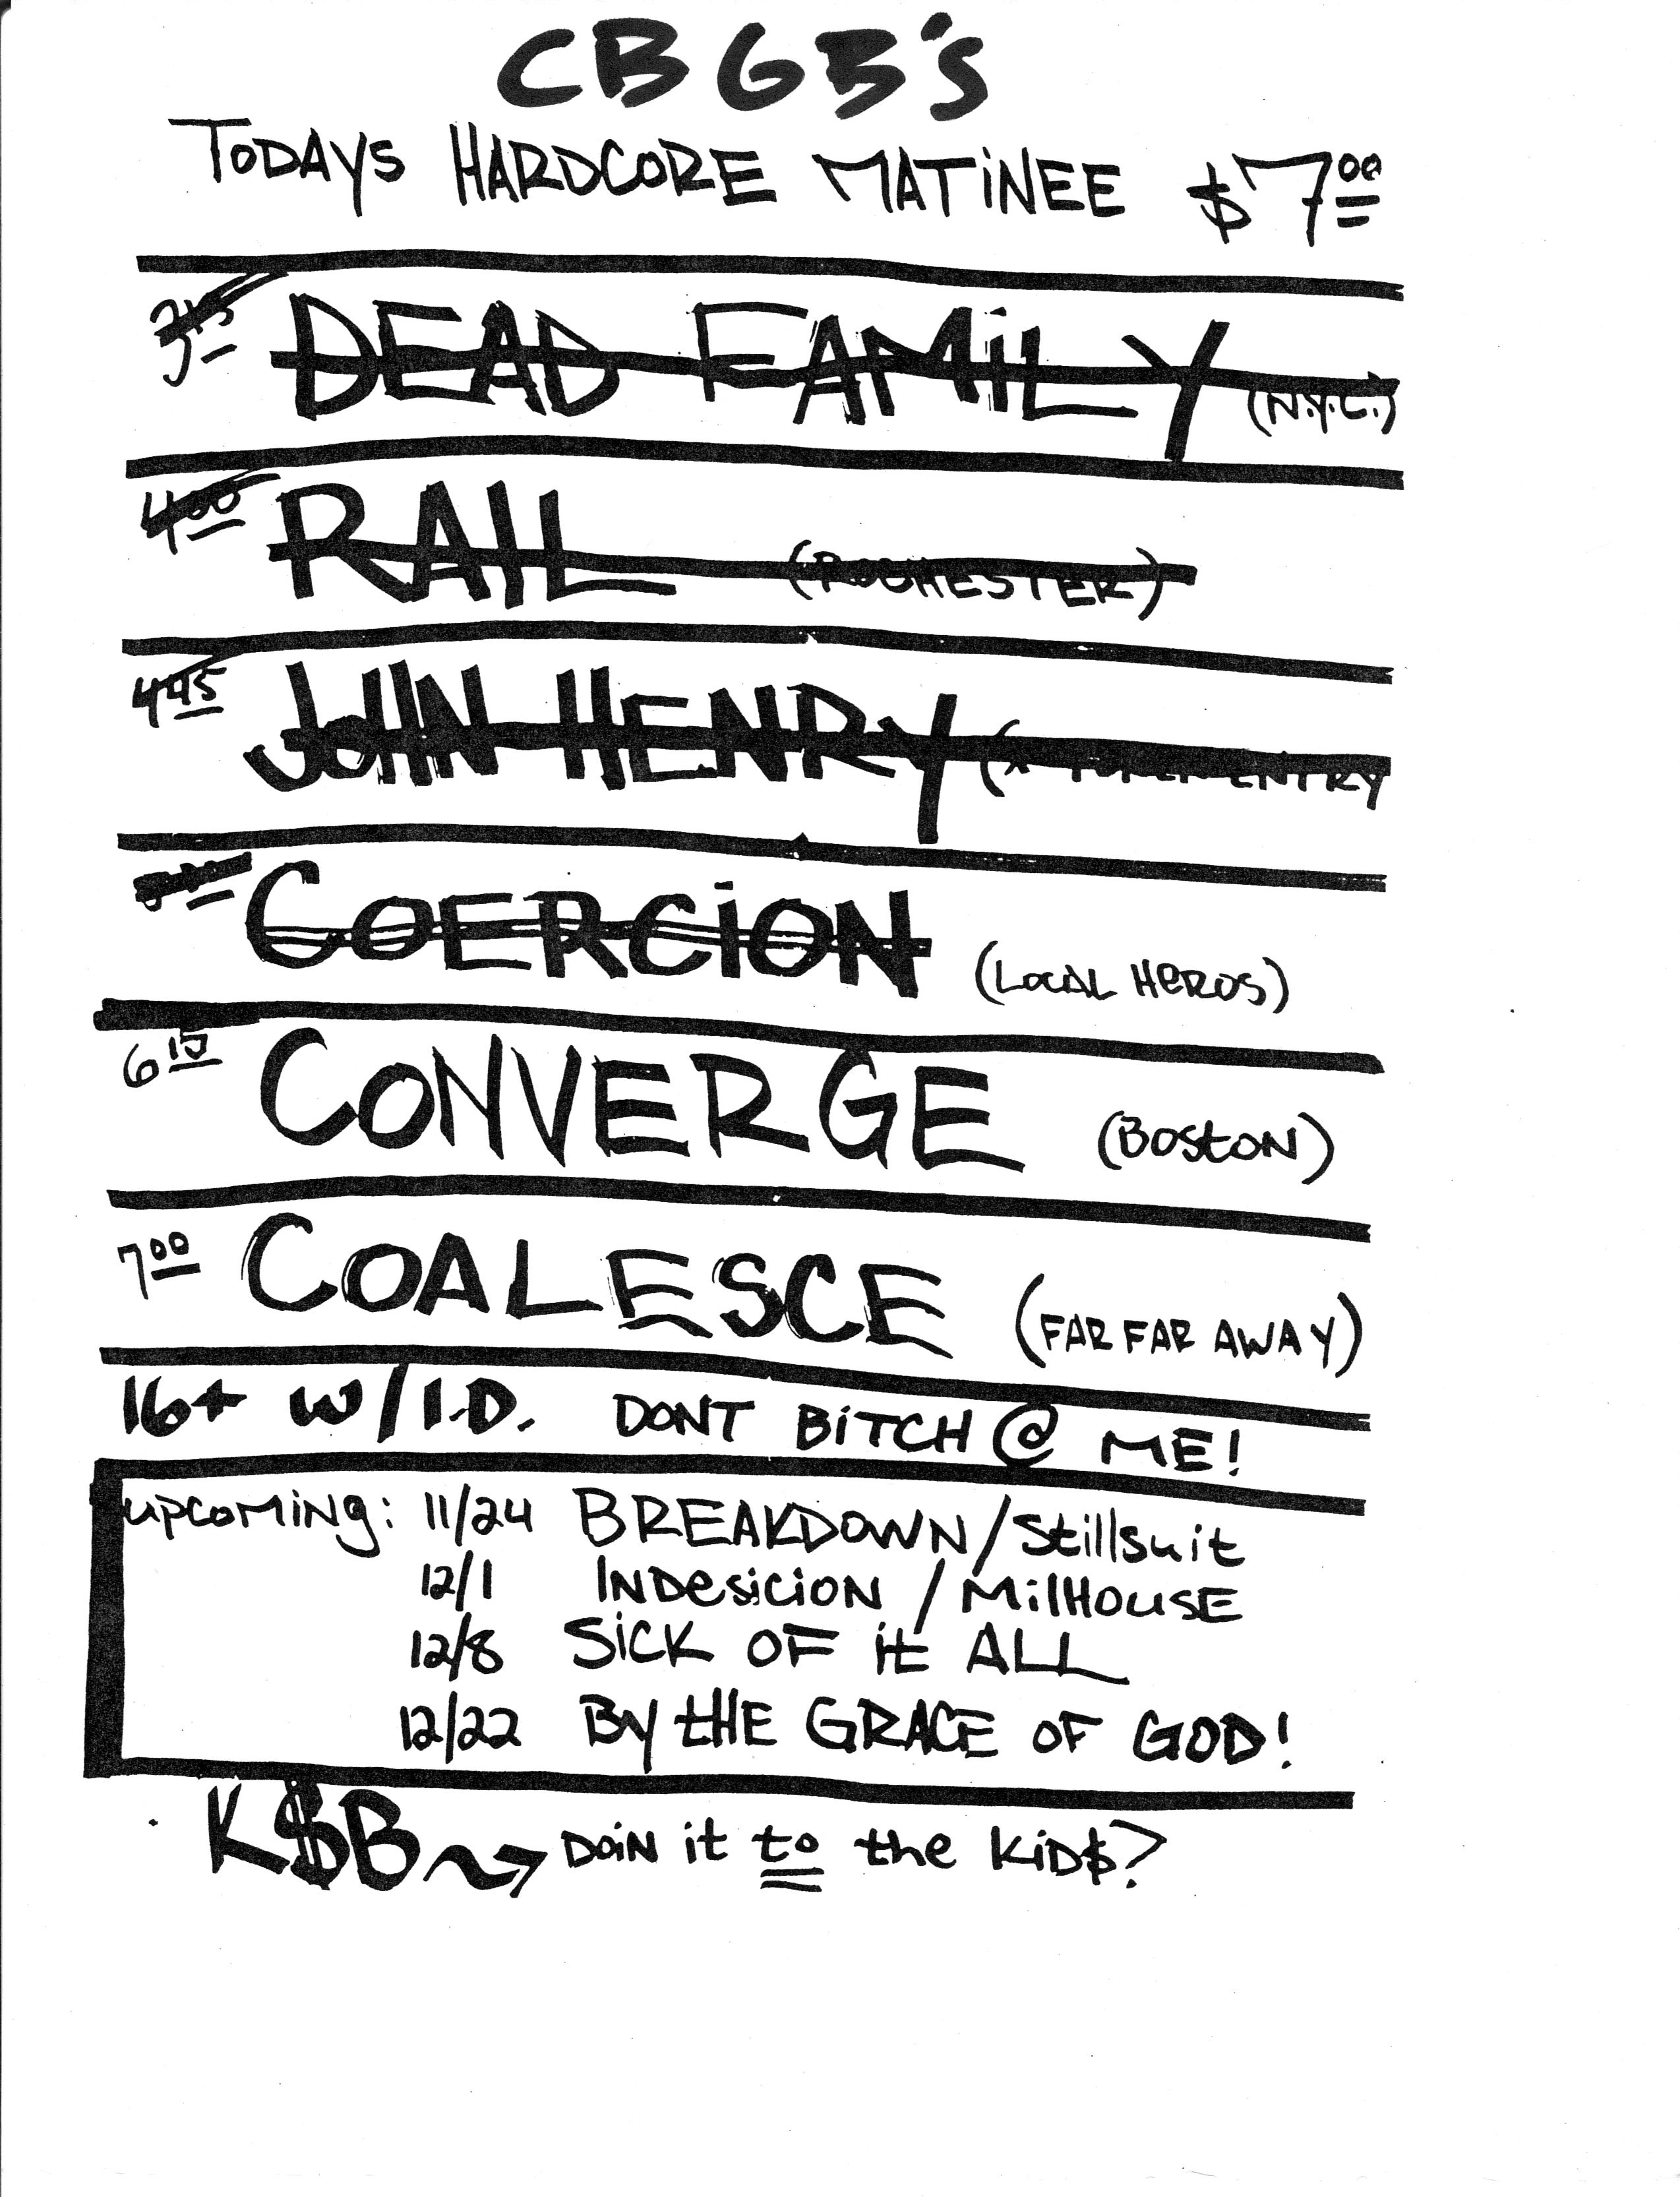 CBGB's
TODAYS HARDCORE MATINEE $7.00
3:15 DEAD FAMILY (N.Y.C.)
4:00 RAIL (ROCHESTER)
4:45 JOHN HENRY ENTRY
COERCION (LOCAL HEROS)
6:15 CONVERGE (BOSTON)
7:00 COALESCE (FAR FAR AWAY)
16+ W/I.D. DONT BITCH @ ME!
UPCOMING: 11/24 BREAKDOWN/Stillsuit
12/1 INDESICION / MILHOUSE
12/8 SICK OF it ALL
12/22 BY tHE GRACE OF GOD!
K$B DOIN it to the KID$?